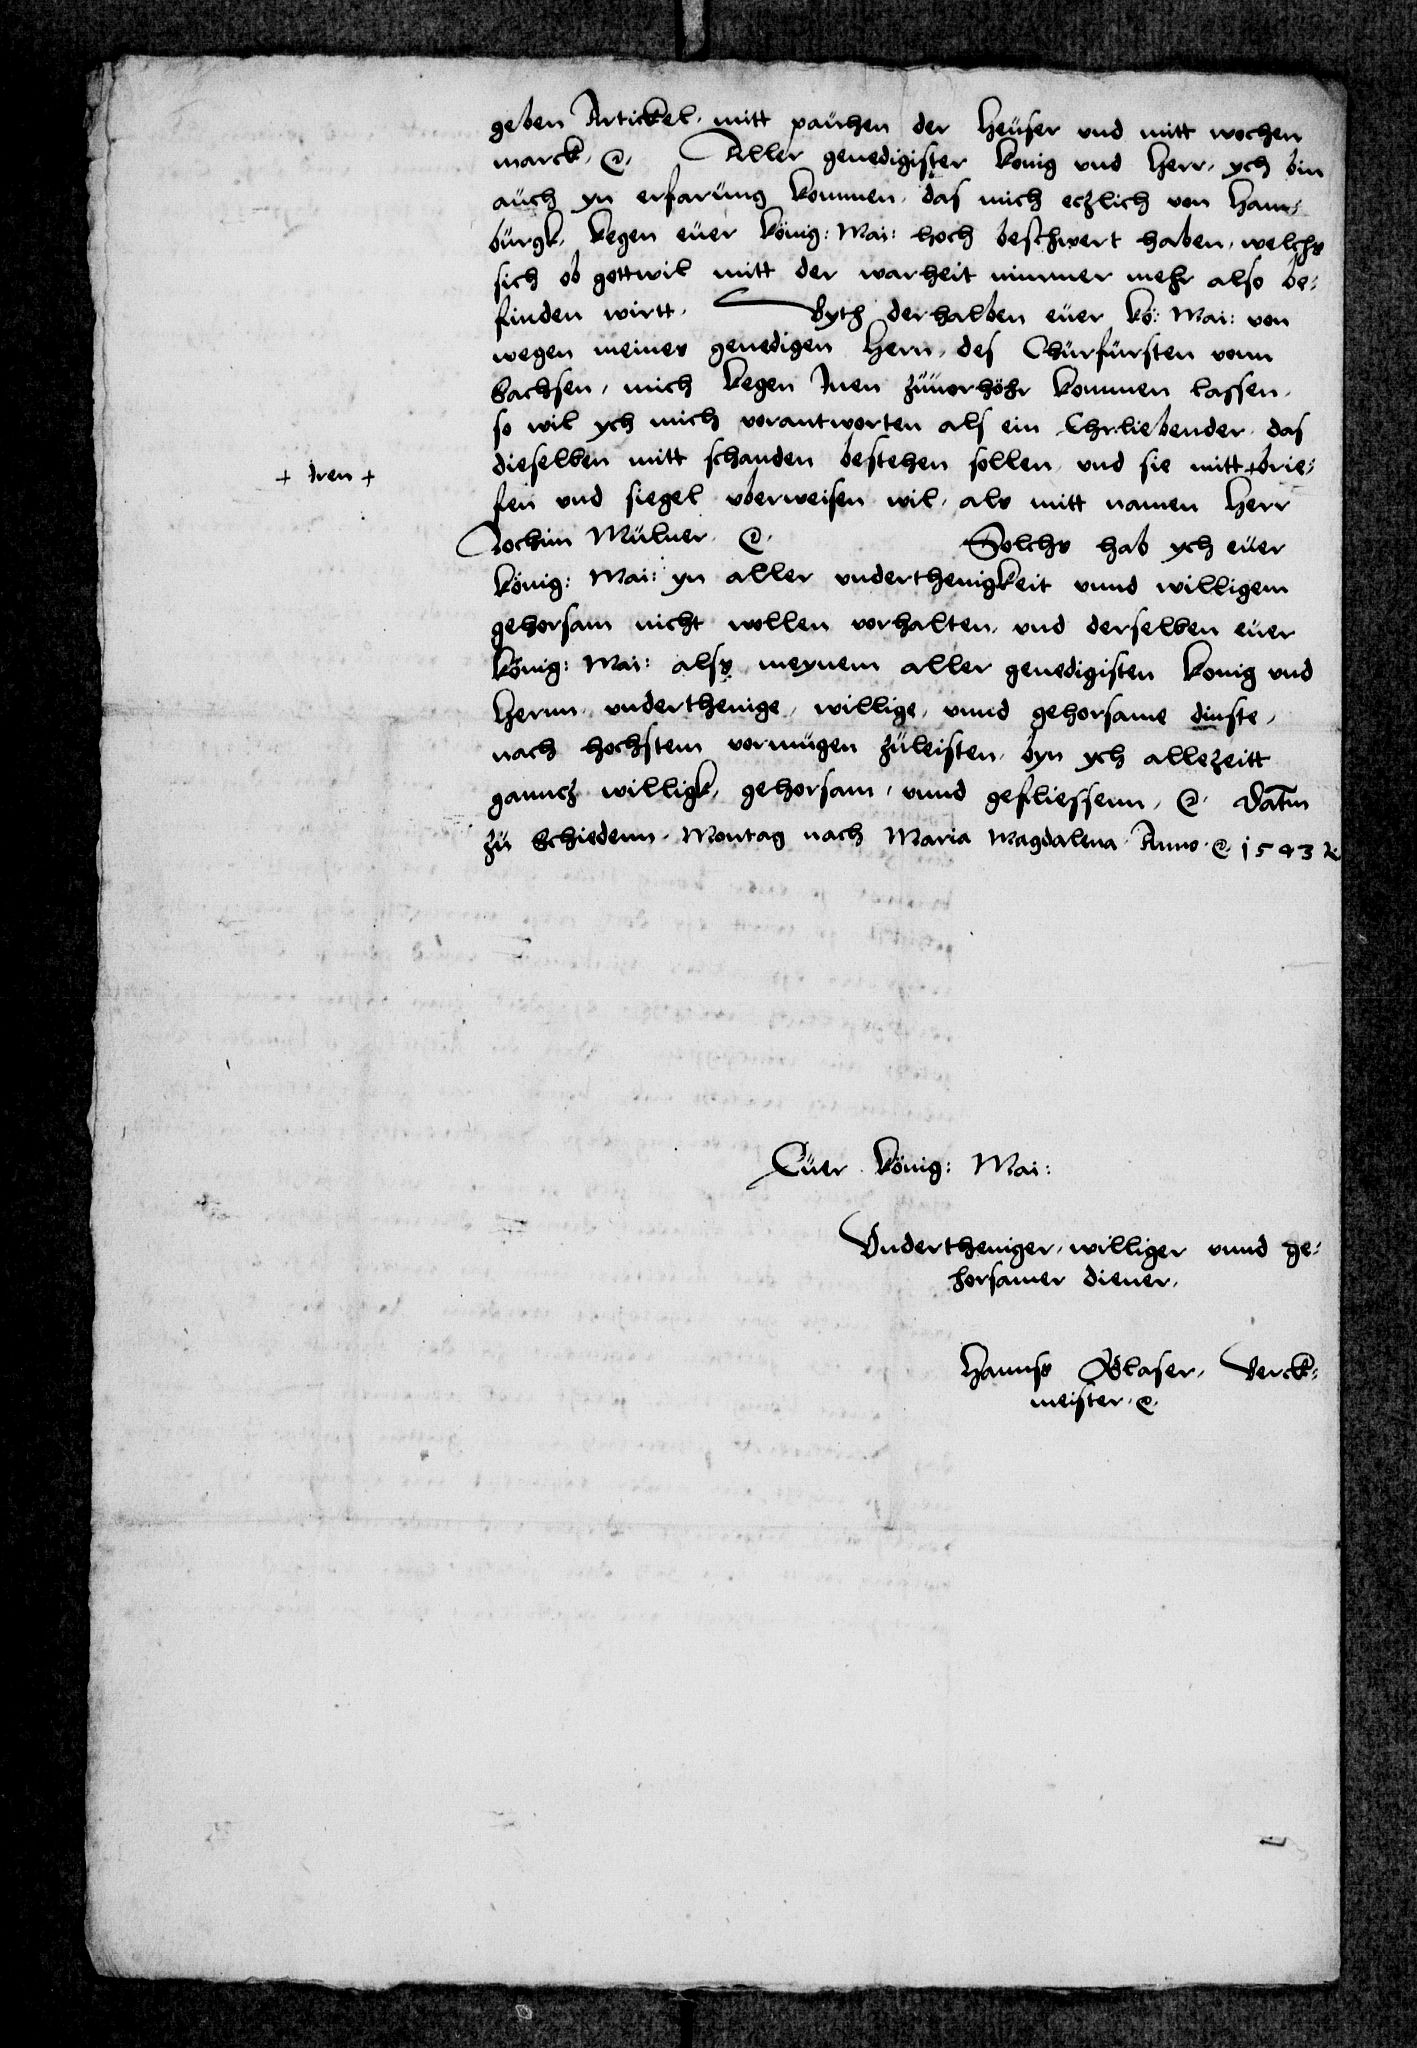 geben Artickel, mitt pauhen der Heuser vnd mitt wochen
marck, etc. Aller genedigister konig vnd Herr, ych bin
auch yn erfarung kommen, das mich eczlich von Ham¬
burgk, kegen euer König: Mai: hoch beschwert haben, welchs
sich ob gottwil mitt der warheit nimmer mehr also be¬
finden wirtt. Byth derhalben euer kö: Mai: von
wegen meines genedigen Hern, des Churfürsten vonn
Sachsen, mich kegen Inen zuuorhöhr kommen lassen,
so wil ych mich vorantworten als ein Ehrliebender, das
dieselben mitt schanden bestehen sollen, vnd sie mitt + brie¬
+ iren +
fen vnd siegel vberweisen wil, als mitt namen Herr
Jochim Mülner, etc. Solchs hab ych euer
König: Mai: yn aller vnderthenigkeit vnnd willigem
gehorsam nicht wollen vorhalten, vnd derselben euer
König: Mai: alss meynem aller genedigisten konig vnd
Hernn, vnderthenige, willige, vnnd gehorsame dinste,
nach hochstem vormügen zuleisten, byn ych allezeitt
ganncz willigk, gehorsam, vnnd gefliessenn, etc. Datum
zu Schiedenn, Montag nach Maria Magdalena, Anno etc 1543
Euer König: Mai:
Vndertheniger, williger vnnd ge¬
horsamer diener,
Hannss Glaser, Berck¬
meister, etc